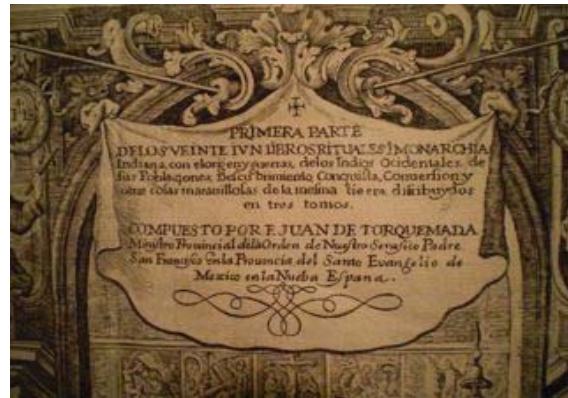 PRIMERA PARTE
DE LOS VEINTE IVN LIBROS RITUALES I MONARCHIA
Indiana, con el origen y guerras, de los Indios Ocidentales, de
sus Poblaçones, Descubrimiento, Conquista, Conuersion y
otras cosas marauillosas de la mesma tierra distribuydos
en tres tomos.
COMPUESTO POR F. JUAN DE TORQUEMADA
Ministro Prouincial de la Orden de Nuestro Serafico Padre
San Françisco en la Prouincia del Santo Evangelio de
Mexico en la Nueba Espana.